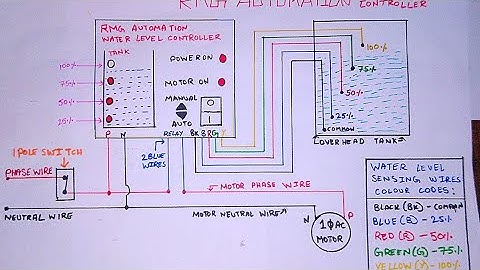 RMG AUTOMATION CONTROLLER
RMG AUTOMATION
WATER LEVEL CONTROLLER
TANK
100%
75%
50%
25%
POWER ON
MOTOR ON
MANUAL
AUTO
P N RELAY BK B R G Y
100%
75%
50%
25%
COMMON
OVERHEAD TANK
1 POLE SWITCH
2 BLUE
WIRES
PHASE WIRE
MOTOR PHASE WIRE
NEUTRAL WIRE
MOTOR NEUTRAL WIRE
N
P
1Φ AC
MOTOR
WATER LEVEL
SENSING WIRES
COLOUR CODES:
BLACK (BK) - COMMON
BLUE (B) - 25%
RED (R) - 50%
GREEN (G) - 75%
YELLOW (Y) - 100%